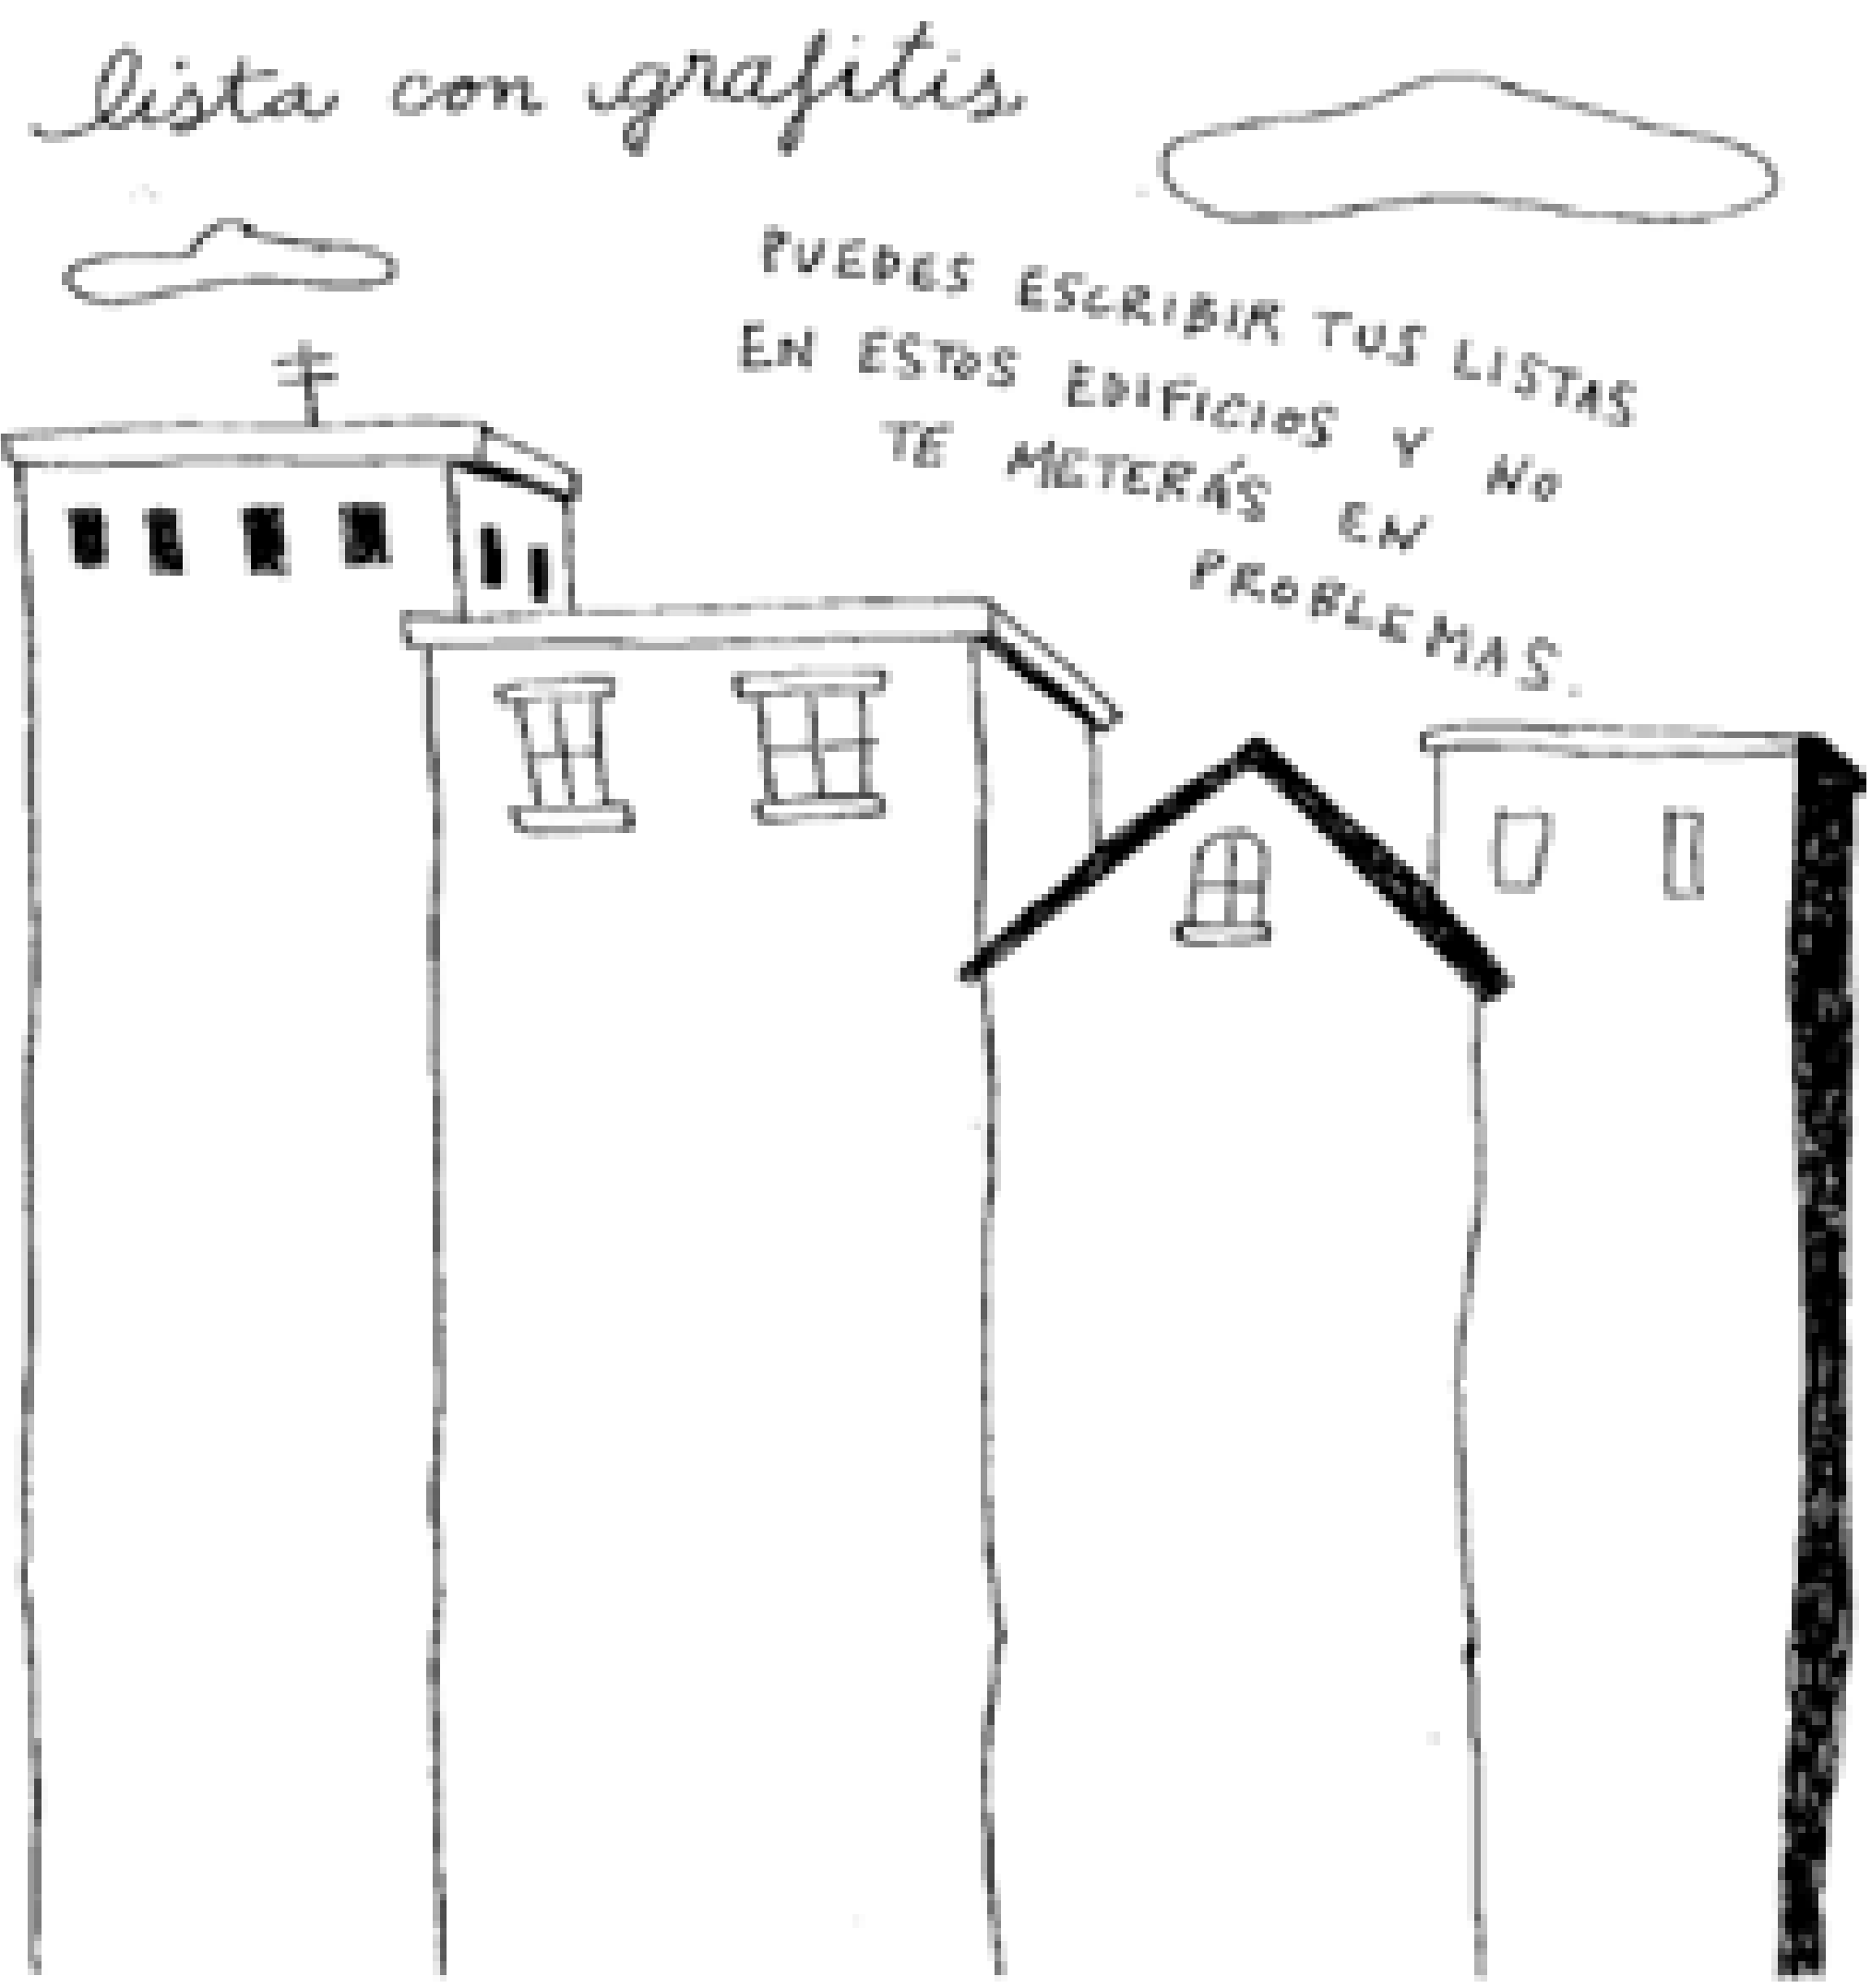 lista con grafitis
PUEDES ESCRIBIR TUS LISTAS
EN ESTOS EDIFICIOS Y NO
TE METERÁS EN
PROBLEMAS.